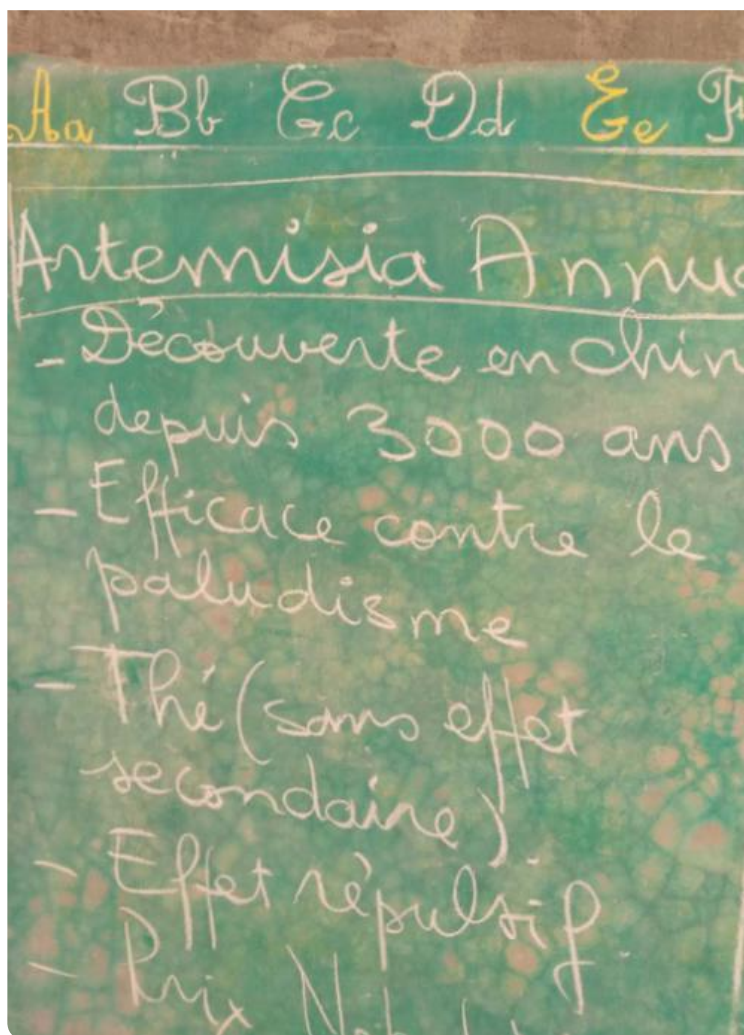 Aa Bb Cc Dd Ee F
Artemisia Annua
- Découverte en chin
depuis 3000 ans
- Efficace contre le
paludisme
- Thé (sans effet
secondaire)
- Effet répulsif
- Prix